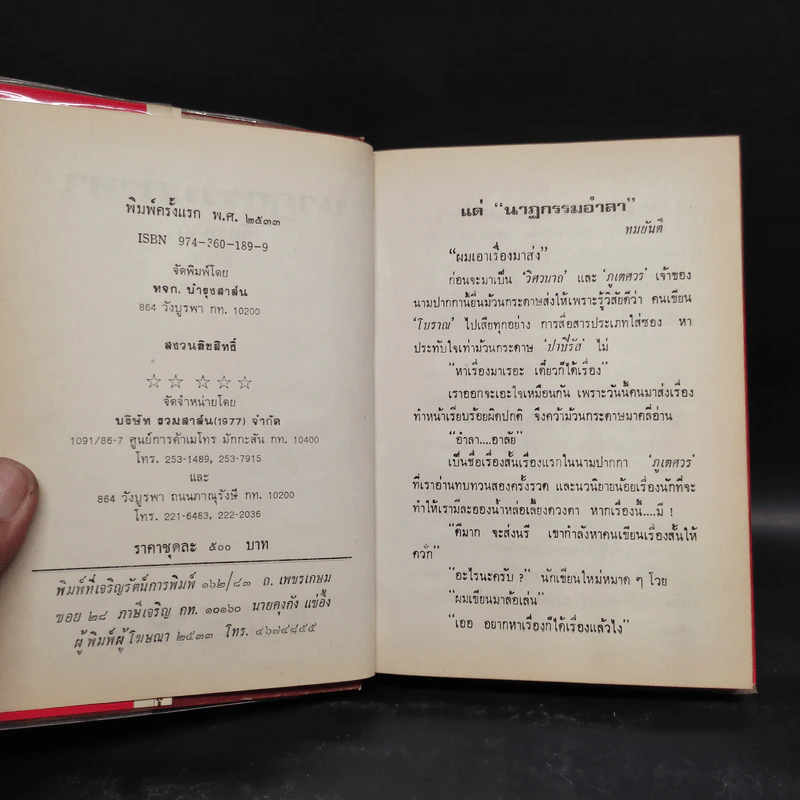 พิมพ์ครั้งแรก พ.ศ. ๒๕๓๓
ISBN 974-360-189-9
จัดพิมพ์โดย
หจก. บำรุงสาส์น
864 วังบูรพา กท. 10200
สงวนลิขสิทธิ์
☆☆ ☆☆☆
จัดจำหน่ายโดย
บริษัท รวมสาส์น(1977) จำกัด
1091/86-7 ศูนย์การค้าเมโทร มักกะสัน กท. 10400
โทร. 253-1489, 253-7915
และ
864 วังบูรพา ถนนภาณุรังษี กท. 10200
โทร. 221-6483, 222-2036
ราคาชุดละ ๕๐๐ บาท
พิมพ์ที่เจริญรัตน์การพิมพ์ ๑๖๒/๘๓ ถ. เพชรเกษม
ซอย ๒๘ ภาษีเจริญ กท. ๑๐๑๖๐ นายคุงกัง แซ่อึ้ง
ผู้พิมพ์ผู้โฆษณา ๒๕๓๓ โทร. ๔๖๗๔๘๕๕
แด่ “นาฏกรรมอำลา”
ทมยันตี
“ผมเอาเรื่องมาส่ง”
ก่อนจะมาเป็น ‘วิศวนาถ’ และ ‘ภูเตศวร’ เจ้าของ
นามปากกานี้ยื่นม้วนกระดาษส่งให้เพราะรู้วิสัยดีว่า คนเขียน
‘โบราณ’ ไปเสียทุกอย่าง การสื่อสารประเภทใส่ซอง หา
ประทับใจเท่าม้วนกระดาษ ‘ปาปีรัส’ ไม่
“หาเรื่องมาเรอะ เดี๋ยวก็ได้เรื่อง”
เราออกจะเอะใจเหมือนกัน เพราะวันนี้คนมาส่งเรื่อง
ทำหน้าเรียบร้อยผิดปกติ จึงคว้าม้วนกระดาษมาคลี่อ่าน
“อำลา....อาลัย”
เป็นชื่อเรื่องสั้นเรื่องแรกในนามปากกา ‘ภูเตศวร’
ที่เราอ่านทบทวนสองครั้งรวด และนวนิยายน้อยเรื่องนักที่จะ
ทำให้เรามีละอองน้ำหล่อเลี้ยงดวงตา หากเรื่องนี้....มี !
“ดีมาก จะส่งนรี เขากำลังหาคนเขียนเรื่องสั้นให้
ควั่ก”
“อะไรนะครับ ?” นักเขียนใหม่หมาด ๆ โวย
“ผมเขียนมาล้อเล่น”
“เออ อยากหาเรื่องก็ได้เรื่องแล้วไง”